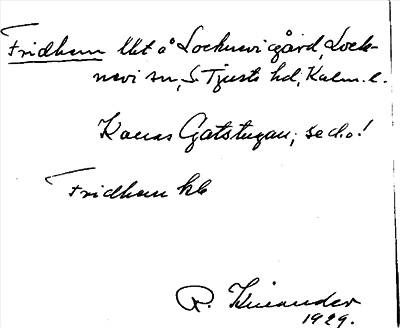 Fridhem lht å Locknevi gård, Lock-
nevi sn, S Tjusts hd, Kalm. l.
Kallas Gatstugan; se d.o!
Fridhem kb
R. Kinander
1929.